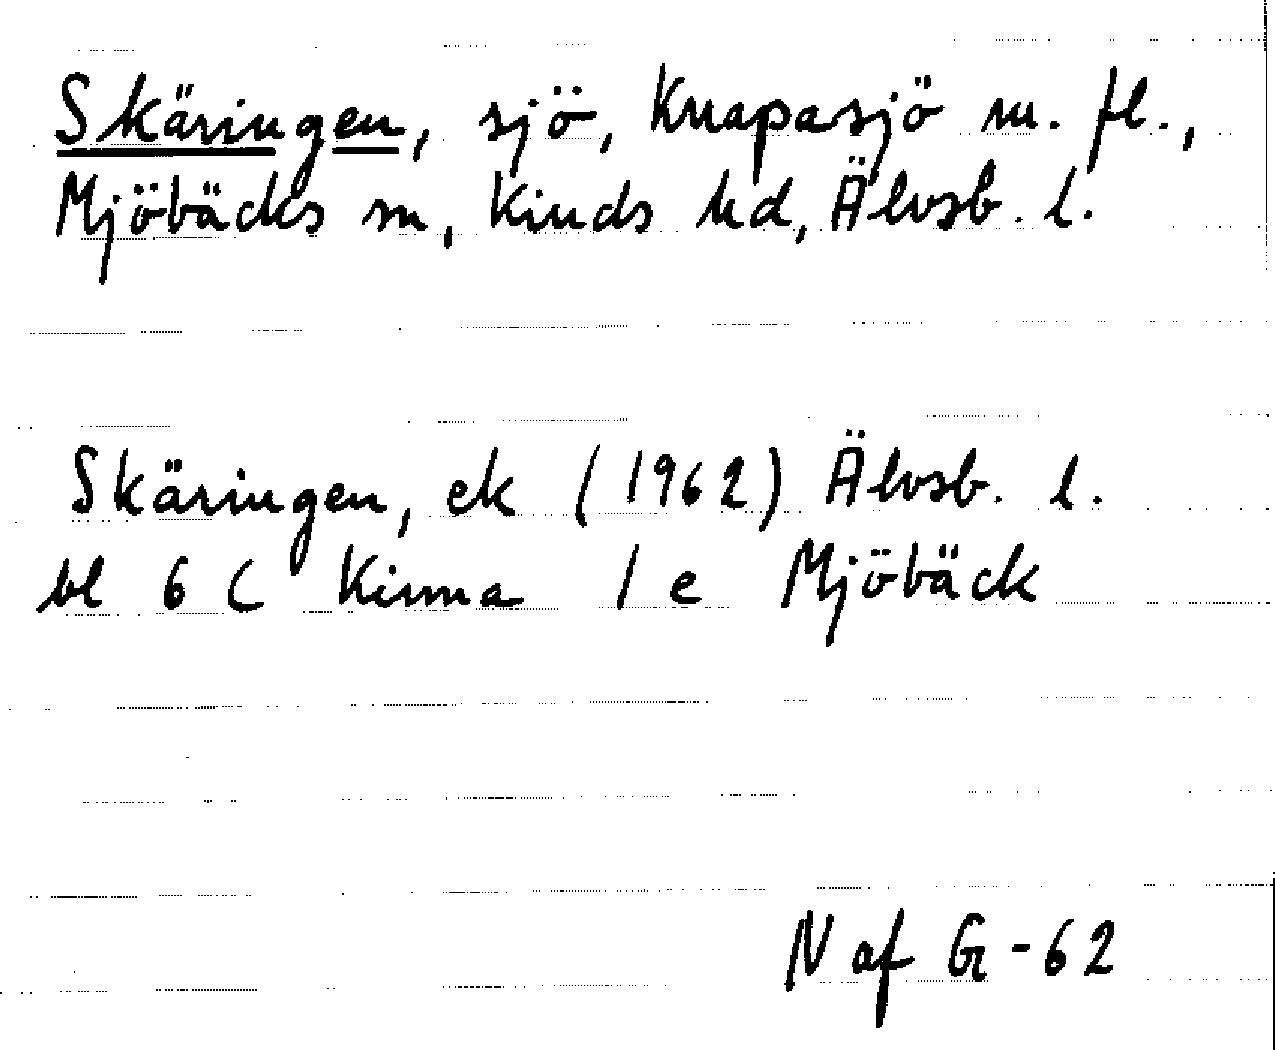 Skäringen, sjö, Knapasjö m. fl.,
Mjöbäcks sn, Kinds hd, Älvsb. l.
Skäringen, ek (1962) Älvsb. l.
bl 6 C Kinna 1 e Mjöbäck
N af G -62